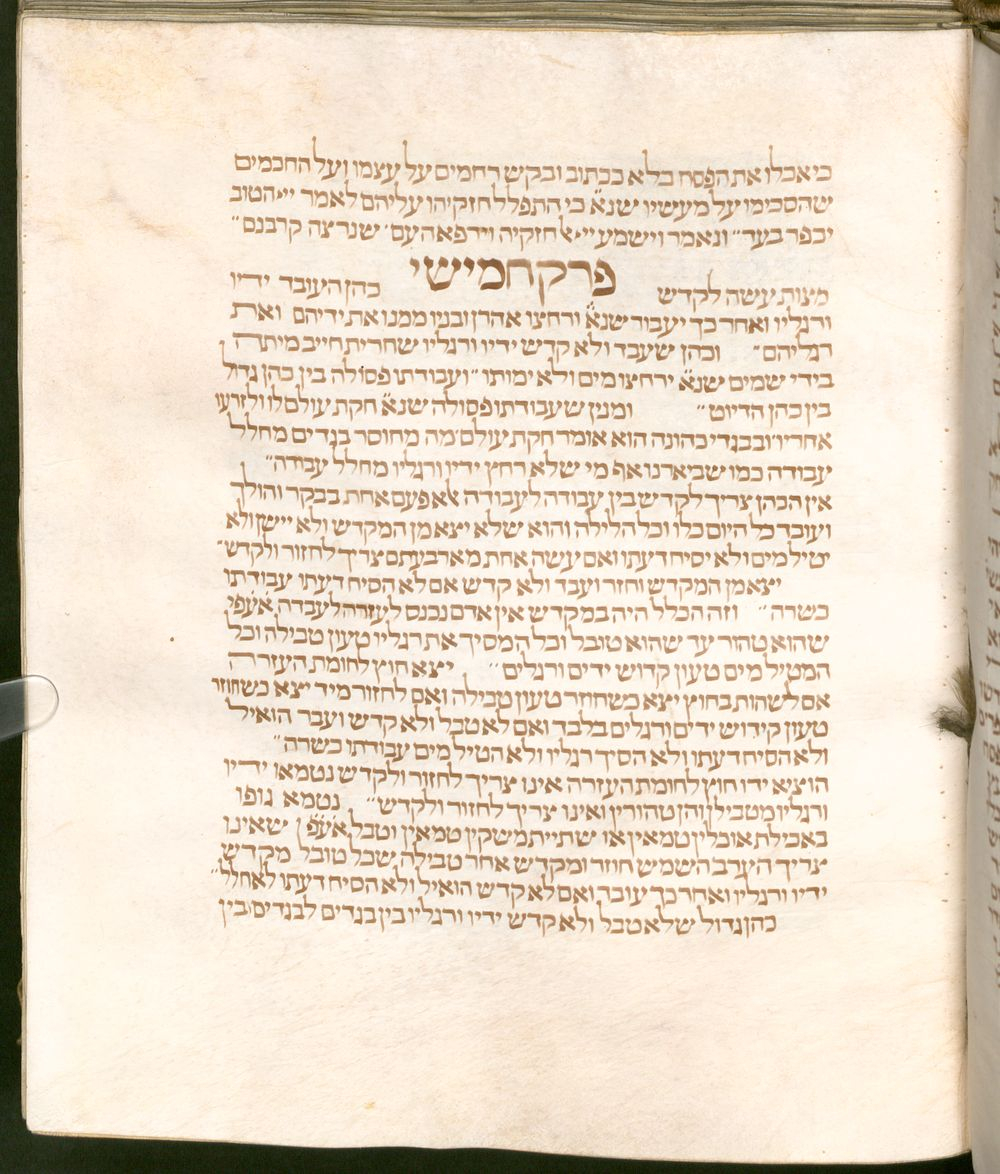 כי אכלו את הפסח בלא ככתוב ובקש רחמים על עצמו ועל החכמים
שהסכימו על מעשיו שנא׳ כי התפלל חזקיהו עליהם לאמר ייי הטוב
יכפר בעד״ ונאמר וישמע ייי אל חזקיה וירפא העם׳ שנרצה קרבנם״
פרק חמישי
מצות עשה לקדש כהן העובד ידיו
ורגליו ואחר כך יעבור שנא׳ ורחצו אהרן ובניו ממנו את ידיהם ואת
רגליהם״ וכהן שעבד ולא קדש ידיו ורגליו שחרית חייב מיתה
בידי שמים שנא׳ ירחצו מים ולא ימותו״ ועבודתו פסולה בין כהן גדול
בין כהן הדיוט״ ומנין שעבודתו פסולה שנא׳ חקת עולם לו ולזרעו
אחריו ובבגדי כהונה הוא אומר חקת עולם׳ מה מחוסר בגדים מחלל
עבודה כמו שביארנו אף מי שלא רחץ ידיו ורגליו מחלל עבודה״
אין הכהן צריך לקדש בין עבודה לעבודה אלא פעם אחת בבקר והולך
ועובד כל היום כלו וכל הלילה והוא שלא יצא מן המקדש ולא יישן ולא
יטיל מים ולא יסיח דעתו ואם עשה אחת מארבעתם צריך לחזור ולקדש״
יצא מן המקדש וחזר ועבד ולא קדש אם לא הסיח דעתו עבודתו
כשרה״ וזה הכלל היה במקדש אין אדם נכנס לעזרה לעבודה אעפי
שהוא טהור עד שהוא טובל וכל המסיך את רגליו טעון טבילה וכל
המטיל מים טעון קדוש ידים ורגלים״ יצא חוץ לחומת העזרה
אם לשהות בחוץ יצא כשחוזר טעון טבילה ואם לחזור מיד יצא כשחוזר
טעון קידוש ידים ורגלים בלבד ואם לא טבל ולא קדש ועבר הואיל
ולא הסיח דעתו ולא הסיך רגליו ולא הטיל מים עבודתו כשרה״
הוציא ידו חוץ לחומת העזרה אינו צריך לחזור ולקדש נטמאו ידיו
ורגליו מטבילן והן טהורין ואינו צריך לחזור ולקדש״ נטמא גופו
באכילת אוכלין טמאין או שתיית משקין טמאין וטבל אעפ״ שאינו
צריך הערב השמש חוזר ומקדש אחר טבילה שכל טובל מקדש
ידיו ורגליו ואחר כך עובד ואם לא קדש הואיל ולא הסיח דעתו לא חלל״
כהן גדול שלא טבל ולא קדש ידיו ורגליו בין בגדים לבגדים ובין